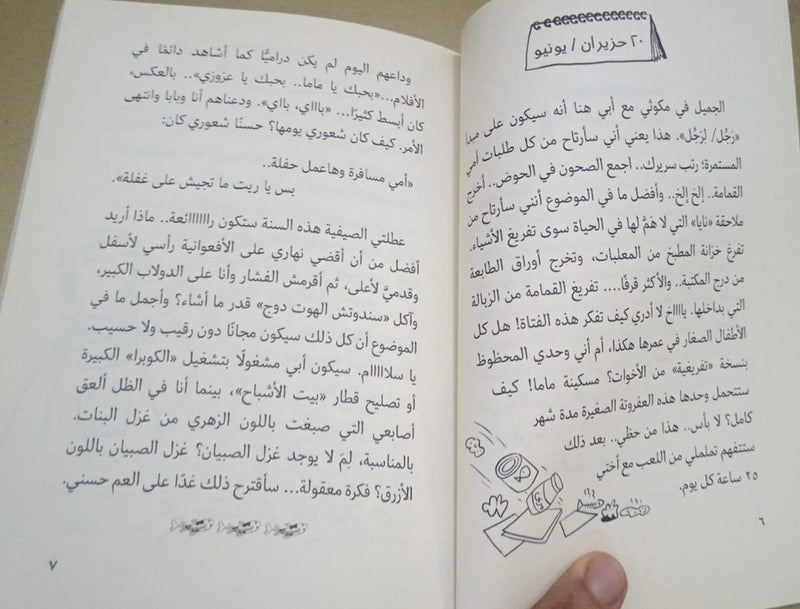 ٢٠ حزيران / يونيو
الجميل في مكوثي مع أبي هنا أنه سيكون على مبدأ
«رَجُل/ لِرَجُل». هذا يعني أني سأرتاح من كل طلبات أمي
المستمرة؛ رتب سريرك.. اجمع الصحون في الحوض.. أخرج
القمامة.. إلخ إلخ.. وأفضل ما في الموضوع أنني سأرتاح من
ملاحقة «نايا» التي لا هَمَّ لها في الحياة سوى تفريغ الأشياء.
تفرغ خزانة المطبخ من المعلبات، وتخرج أوراق الطابعة
من درج المكتبة.. والأكثر قرفًا.... تفريغ القمامة من الزبالة
التي بداخلها. ياااخ لا أدري كيف تفكر هذه الفتاة! هل كل
الأطفال الصغار في عمرها هكذا، أم أني وحدي المحظوظ
بنسخة «تفريغية» من الأخوات؟ مسكينة ماما! كيف
ستتحمل وحدها هذه العفروتة الصغيرة مدة شهر
كامل؟ لا بأس.. هذا من حظي.. بعد ذلك
ستتفهم تململي من اللعب مع أختي
٢٥ ساعة كل يوم.
٦
وداعهم اليوم لم يكن دراميًّا كما أشاهد دائمًا في
الأفلام...«بحبك يا ماما.. بحبك يا عزوزي».. بالعكس،
كان أبسط كثيرًا... «باااي، بااي». ودعناهم أنا وبابا وانتهى
الأمر. كيف كان شعوري يومها؟ حسنًا شعوري كان:
«أمي مسافرة وهاعمل حفلة..
بس يا ريت ما تجيش على غفلة».
عطلتي الصيفية هذه السنة ستكون رااااااائعة.. ماذا أريد
أفضل من أن أقضي نهاري على الأفعوانية رأسي لأسفل
وقدميَّ لأعلى، ثم أقرمش الفشار وأنا على الدولاب الكبير،
وآكل «سندوتش الهوت دوج» قدر ما أشاء؟ وأجمل ما في
الموضوع أن كل ذلك سيكون مجانًا دون رقيب ولا حسيب.
يا سلااااام. سيكون أبي مشغولًا بتشغيل «الكوبرا» الكبيرة
أو تصليح قطار «بيت الأشباح»، بينما أنا في الظل ألعق
أصابعي التي صبغت باللون الزهري من غزل البنات.
بالمناسبة، لِمَ لا يوجد غزل الصبيان؟ غزل الصبيان باللون
الأزرق؟ فكرة معقولة... سأقترح ذلك غدًا على العم حسني.
٧